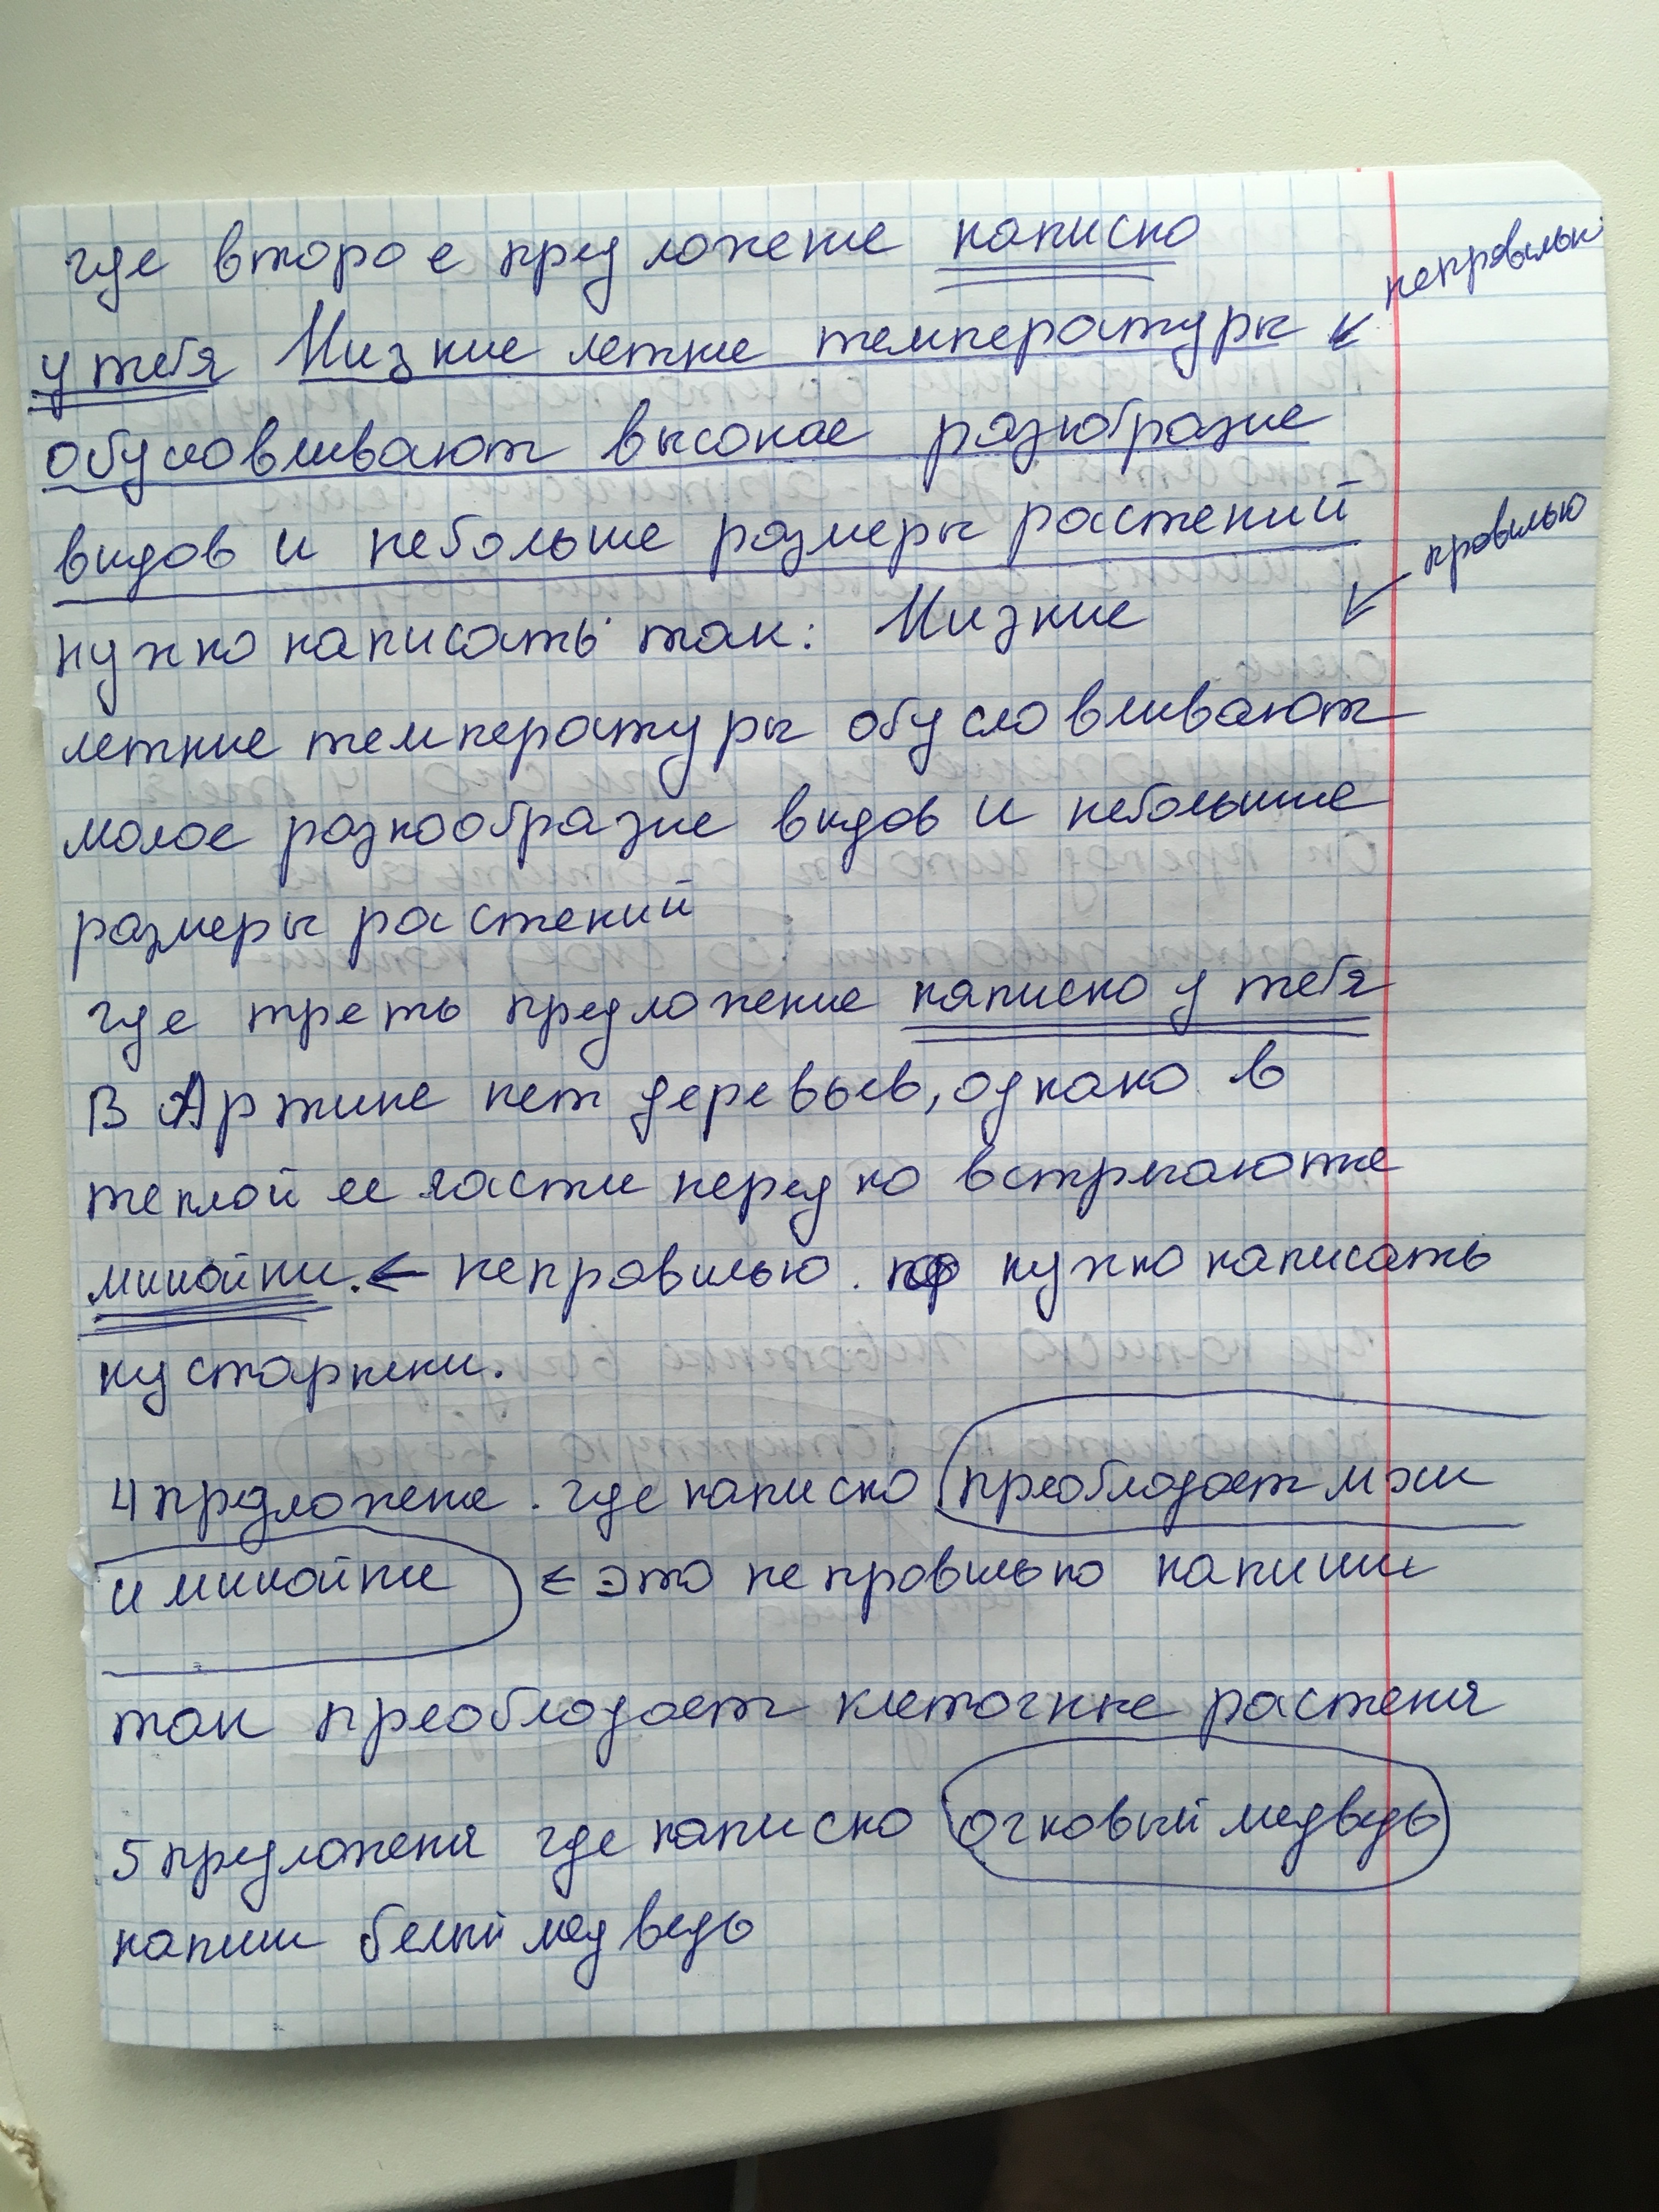 где второе предложение написно
неправильн
у тебя Низкие летние температуры
обусловливают высокае разнобразие
видов и небольше размеры растений
правильно
нужно написать так: Низкие
летние температуры обусловливают
малое разнообразие видов и небольшие
размеры растений
где треть предложение написно у тебя
В Арктике нет деревьев, однако в
теплой ее части нередко встречаютне
лишайники. ← неправильно. нужно написать
кустарнеки.
4 предложене. где написно преобладает мхи
и лишайники ← это неправильно напиши
так преобладает клеточнне растеня
5 предложеня где написно очковый медведь
напиши белый медведь